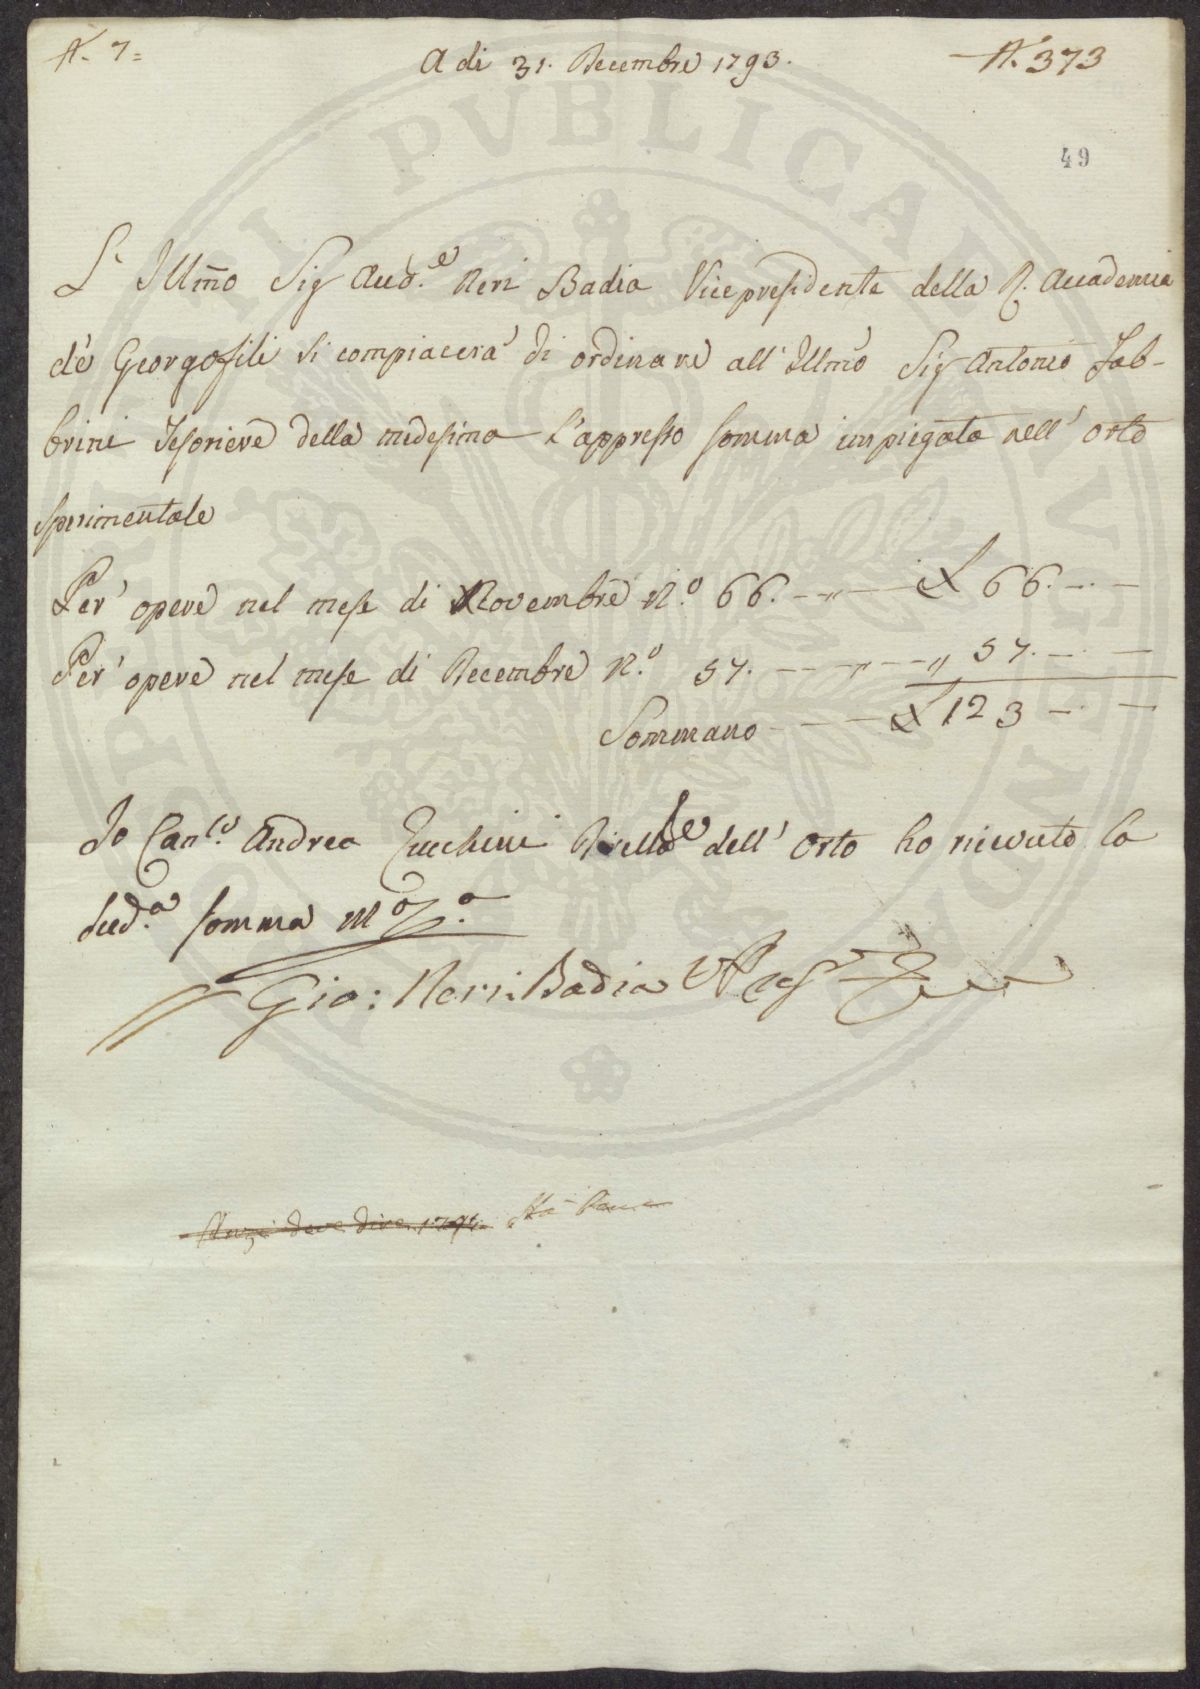 N. 7=
A di 31. Decembre 1793.
N. 373
49
L' Illm̃o Sig Aud.e Neri Badia Vicepresidente della R. Accademia
de' Georgofili si compiacerà di ordinare all' Illmo Sig Antonio Fab-
brini Tesoriere della medesima l'appresso somma impiegata nell' orto
sperimentale
Per opere nel mese di Novembre N.o 66. £ 66. — —
Per opere nel mese di Decembre N.o 57. „ 57. — —
Sommano £ 123 — —
Io Can.co Andrea Zucchini Dirett.re dell' orto ho ricevuto la
sud.a somma mo po.a
Gio: Neri Badia VPres
Anzi deve dire 1794. Sta bene
PUBLICAE